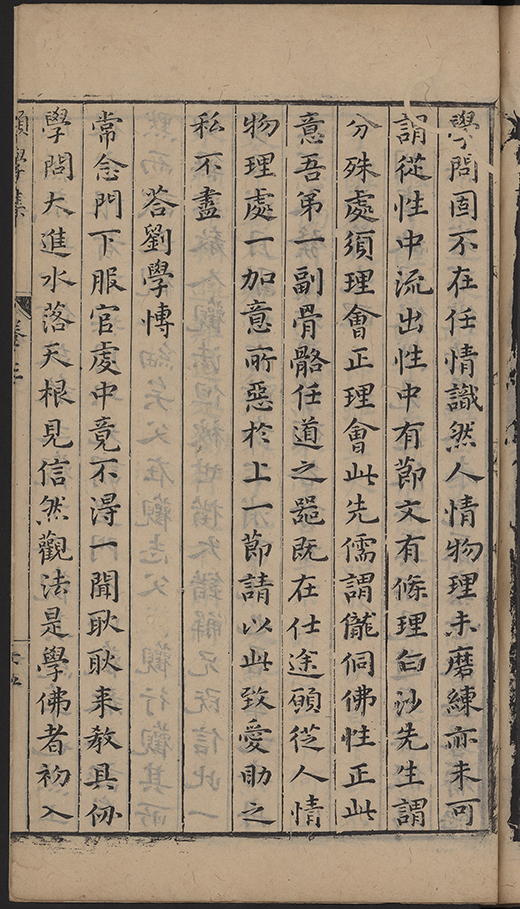 學問固不在任情識然人情物理未磨練亦未可
謂從性中流出性中有節文有條理白沙先生謂
分殊處須理會正理會此先儒謂儱侗佛性正此
意吾弟一副骨骼任道之噐既在仕途願從人情
物理處一加意所惡於上一節請以此致愛助之
私不盡
荅劉學愽
常念門下服官䖏中竟不淂一聞耿耿来教具仞
學問大進水落天根見信然觀法是學佛者初入